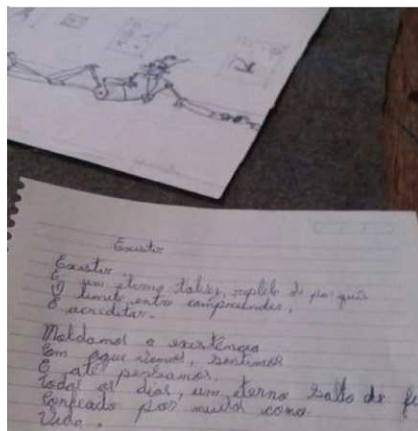 Existir
Existir.
É um eterno talvez, repleto de porquês
O limite entre compreender,
E acreditar.
Moldamos a existência
Em oque vemos, sentimos
E até pensamos.
Todos os dias, um eterno salto de fé
por muitos como
Vida.